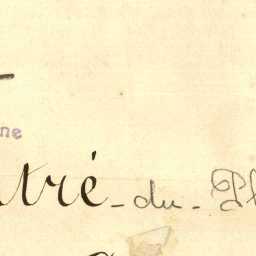 ne
tré-du-Pl